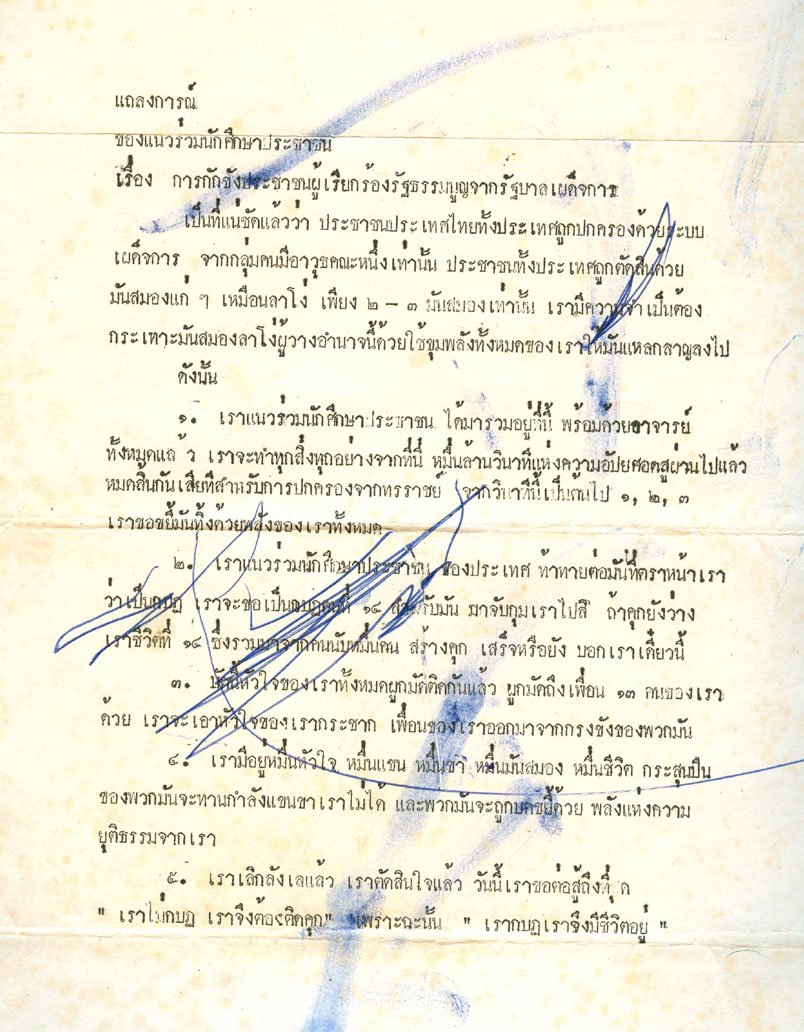 แถลงการณ์
ของแนวร่วมนักศึกษาประชาชน
เรื่อง การกักขังประชาชนผู้เรียกร้องรัฐธรรมนูญจากรัฐบาลเผด็จการ
เป็นที่แน่ชัดแล้วว่า ประชาชนประเทศไทยทั้งประเทศถูกปกครองด้วยระบบ
เผด็จการ จากกลุ่มคนมีอาวุธคณะหนึ่งเท่านั้น ประชาชนทั้งประเทศถูกตัดสินด้วย
มันสมองแก่ ๆ เหมือนลาโง่ เพียง ๒ - ๓ มันสมองเท่านั้น เรามีความจำเป็นต้อง
กระเทาะมันสมองลาโง่ผู้วางอำนาจนี้ด้วยใช้ขุมพลังทั้งหมดของเราให้มันแหลกลาญลงไป
ดังนั้น
๑. เราแนวร่วมนักศึกษาประชาชน ได้มารวมอยู่ที่นี้ พร้อมด้วยอาจารย์
ทั้งหมดแล้ว เราจะทำทุกสิ่งทุกอย่างจากที่นี่ หมื่นล้านวินาทีแห่งความอัปยศอดสูผ่านไปแล้ว
หมดสิ้นกันเสียทีสำหรับการปกครองจากทรราชย์ จากวินาทีนี้เป็นต้นไป ๑, ๒, ๓
เราขอขยี้มันทิ้งด้วยพลังของเราทั้งหมด
๒. เราแนวร่วมนักศึกษาประชาชน ของประเทศ ท้าทายต่อมันที่ตราหน้าเรา
ว่าเป็นกบฏ เราจะขอเป็นกบฏคนที่ ๑๔ สำหรับมัน มาจับกุมเราไปสิ ถ้าคุกยังว่าง
เราชีวิตที่ ๑๔ ซึ่งรวมมาจากคนนับหมื่นคน สร้างคุก เสร็จหรือยัง บอกเราเดี๋ยวนี้
๓. บัดนี้หัวใจของเราทั้งหมดผูกมัดติดกันแล้ว ผูกมัดถึงเพื่อน ๑๓ คนของเรา
ด้วย เราจะเอาหัวใจของเรากระชาก เพื่อนของเราออกมาจากกรงขังของพวกมัน
๔. เรามีอยู่หมื่นหัวใจ หมื่นแขน หมื่นขา หมื่นมันสมอง หมื่นชีวิต กระสุนปืน
ของพวกมันจะทานกำลังแขนขาเราไม่ได้ และพวกมันจะถูกบดขยี้ด้วย พลังแห่งความ
ยุติธรรมจากเรา
๕. เราเลิกลังเลแล้ว เราตัดสินใจแล้ว วันนี้เราขอต่อสู้ถึงที่สุด
" เราไม่กบฏ เราจึงต้องติดคุก" เพราะฉะนั้น " เรากบฏเราจึงมีชีวิตอยู่ "